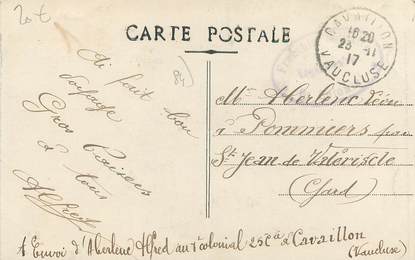 20 €
CARTE POSTALE
CAVAILLON
16 20
23 - 11
17
VAUCLUSE
Ai fait bon
voyage
Gros Baisers
à tous
Alfred
Mr Aberlenc Léon
à Pommiers par
St Jean de Valériscle
Gard
Envoi d'Aberlenc Alfred au 4e colonial 25e Cie à Cavaillon
(Vaucluse)